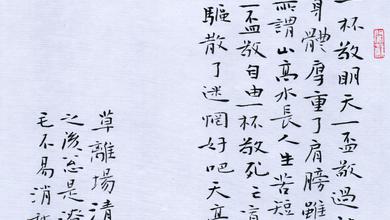 一杯敬明天一盃敬過
身體厚重了肩膀雖
所謂山高水長人生苦短
一盃敬自由一杯敬死亡
驅散了迷惘好吧天
草離場清
之後总是
毛不易消